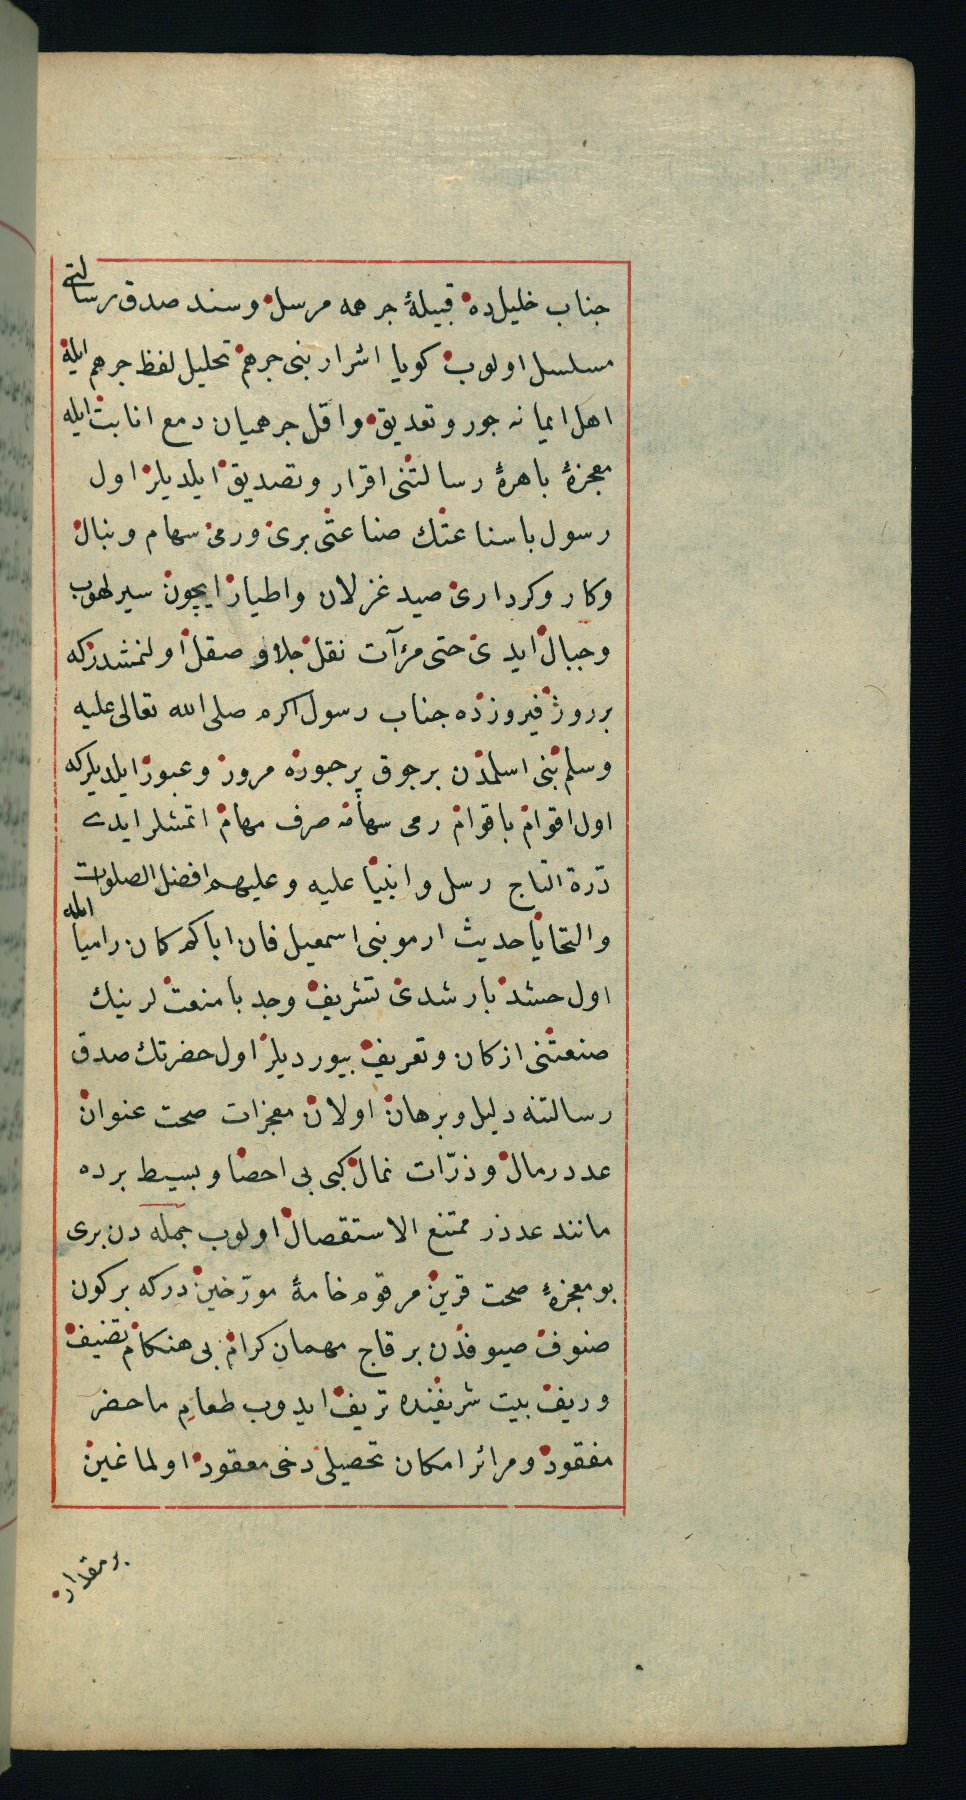 جناب خليل ده قبيلهٔ جرهمه مرسل وسند صدق رسالتى
مسلسل اولوب كويا اشرار بنى جرهم تحليل لفظ جرهم ايله
اهل ايمانه جور وتعديق واقل جرهميان دمع انابت ايله
معجزهٔ باهرهٔ رسالتنى اقرار وتصديق ايلديلر اول
رسول باسنا عتك صناعتى برى ورمى سهام ونبال
وكار وكردارى صيد غزلان واطيار ايچون سير لهوب
وجبال ايدى حتى مرآت نقل جلاو صقل اولنمشدركه
برروز فيروزده جناب رسول اكرم صلى الله تعالى عليه
وسلم بنى اسلمدن برجوق برجوره مرور وعبور ايلديلركه
اول اقوام باقوام رمى سهامه صرف مهام اتمشلر ايدى
درة التاج رسل وانبيا عليه وعليهم افضل الصلوات
والتحايا حديث ارموبنى اسمعيل فان اباكم كان راميا ايله
اول حشد بارشدى تشريف وجد بامنعت لرينك
صنعتنى ازكان وتعريف بيورديلر اول حضرتك صدق
رسالتنه دليل وبرهان اولان معجزات صحت عنوان
عدد رمال وذرّات نمال كبى بى احصا وبسيط برده
مانند عددر ممتنع الاستقصال اولوب جمله دن برى
بو معجزهٔ صحت قرين مرقوم خامهٔ مورّخين دركه بركون
صنوف صيوفدن برقاج مهمان كرام بى هنكام تضنيف
وريف بيت شريفنده تريف ايدوب طعام ماحضر
مفقود ومرائر امكان تحصيلى دخى معقود اولماغين
بر مقدار